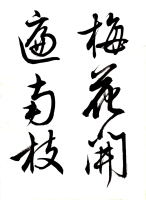 梅花開
遍南枝